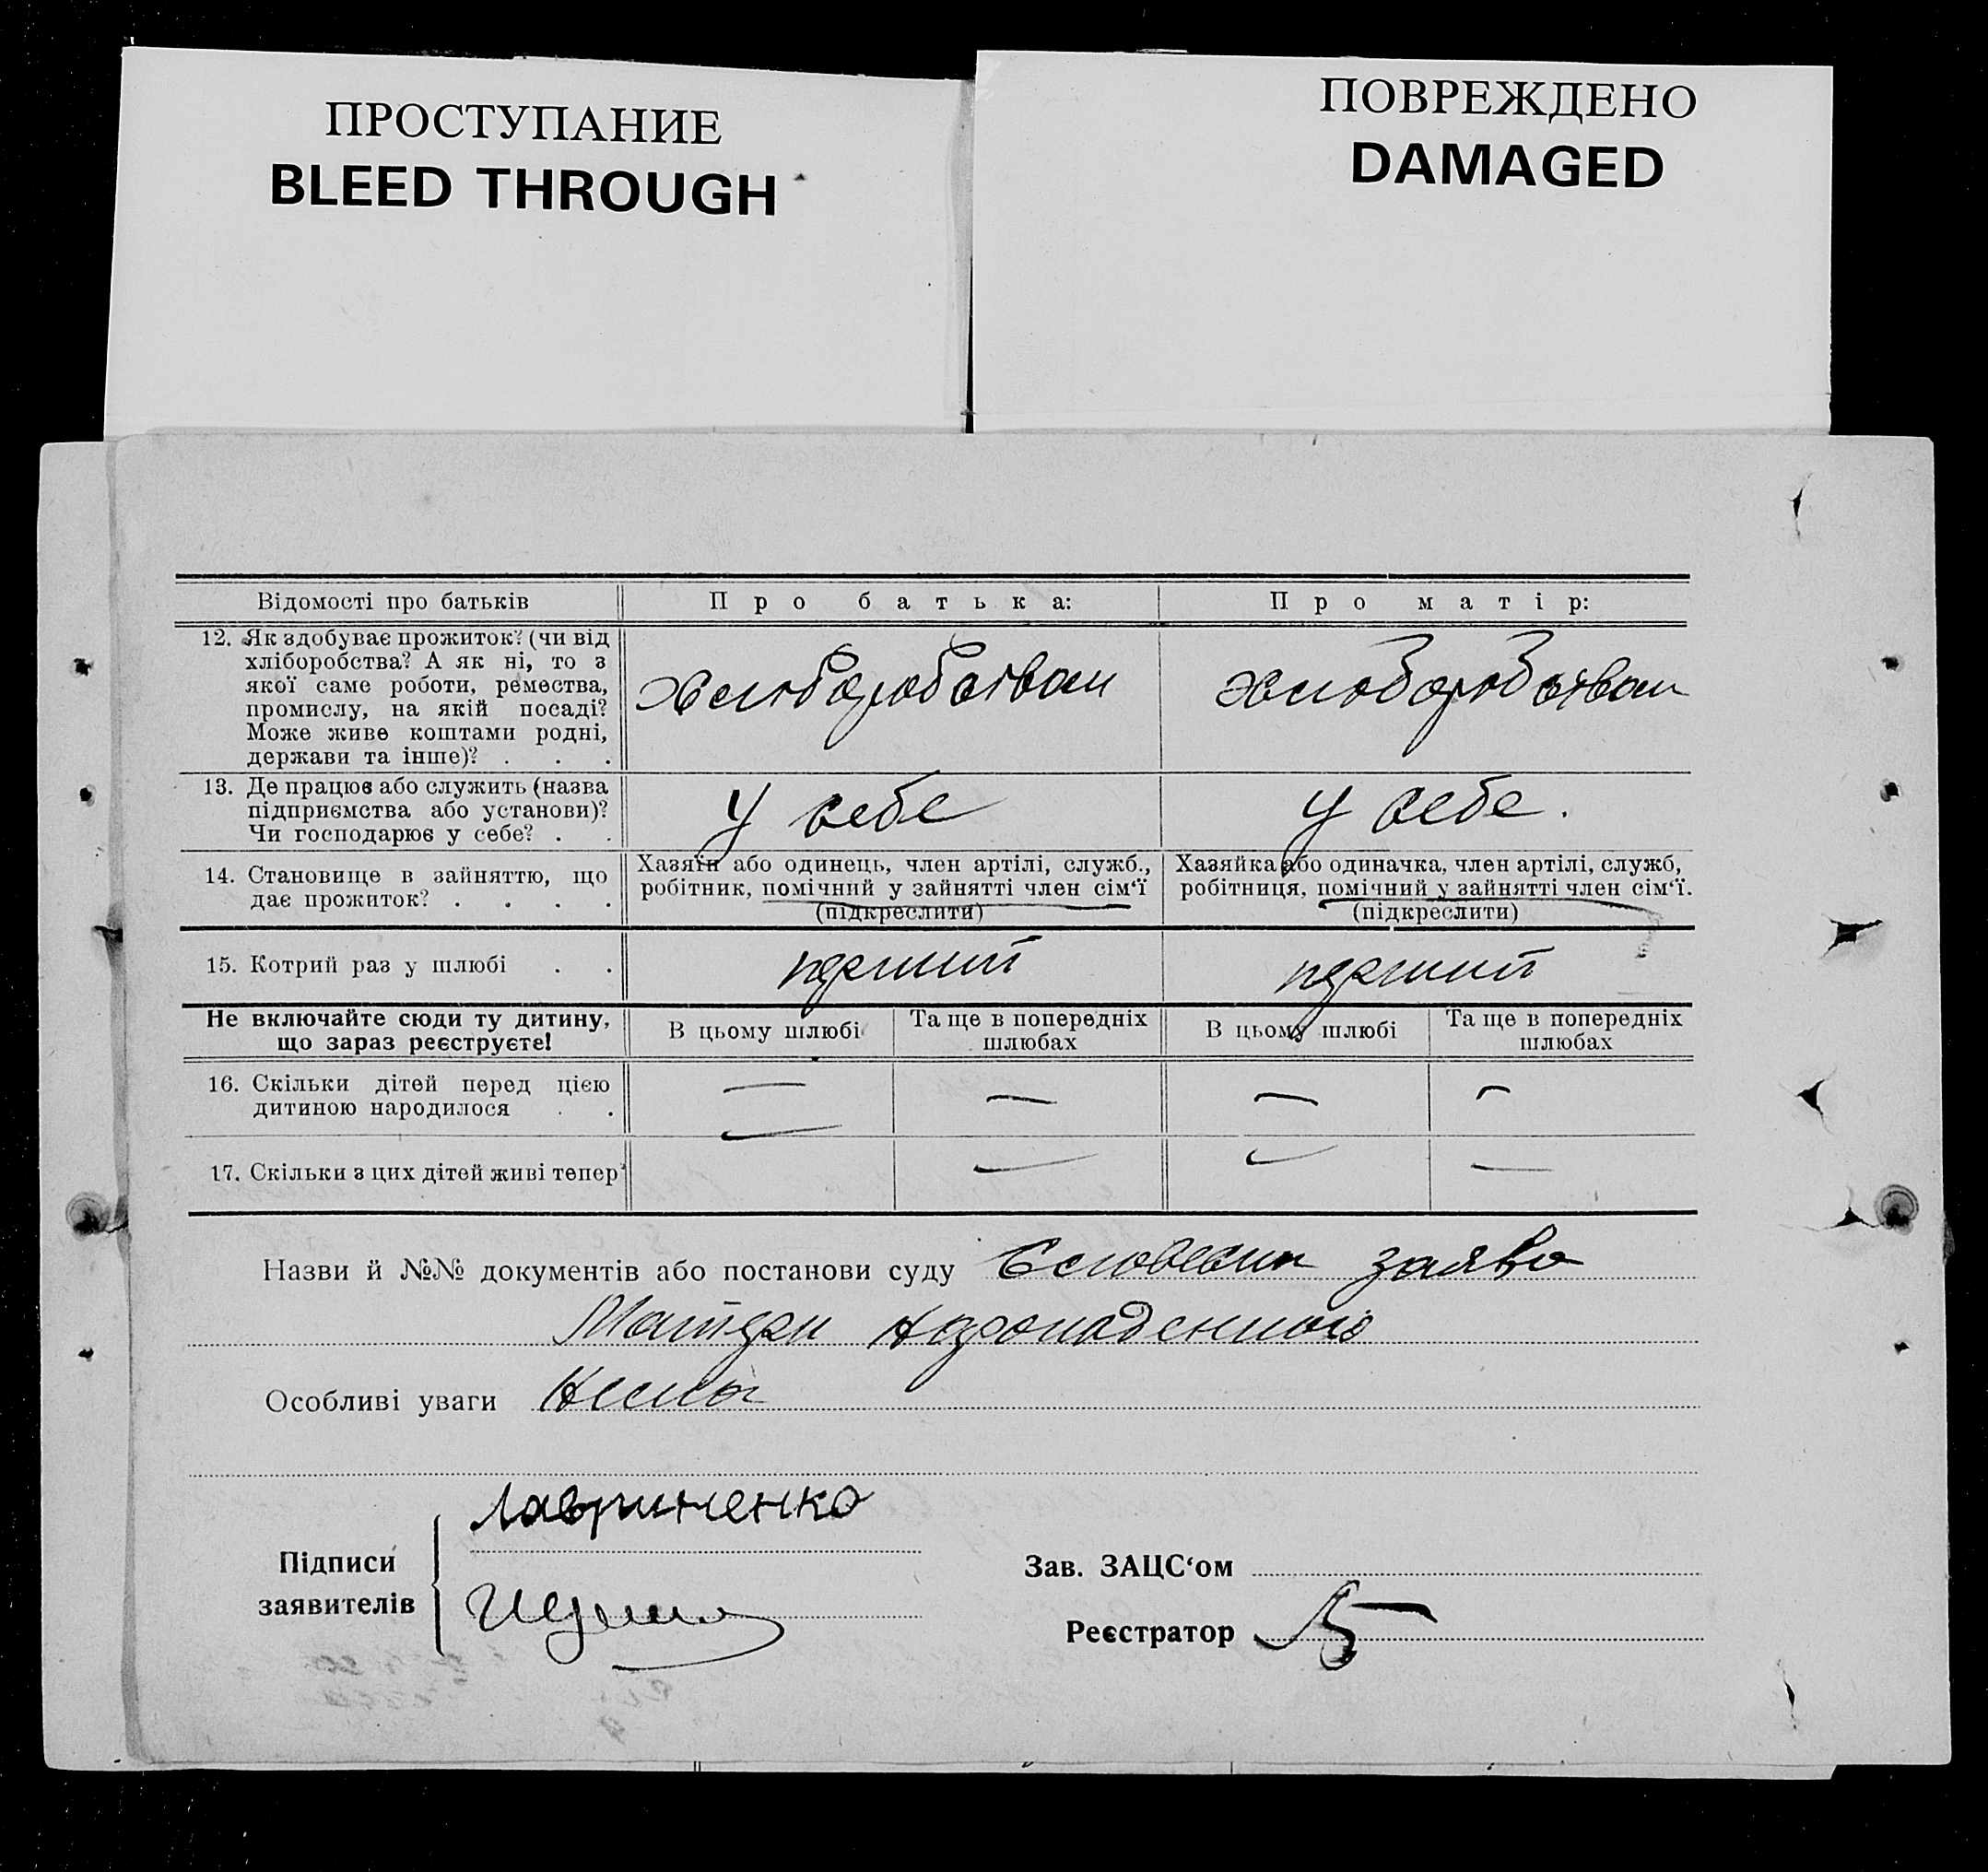 ПРОСТУПАНИЕ
BLEED THROUGH
ПОВРЕЖДЕНО
DAMAGED
Відомості про батьків
Про батька:
Про матір:
12. Як здобуває прожиток? (чи від
хліборобства? А як ні, то з
якої саме роботи, ремества,
промислу, на якій посаді?
Може живе коштами родні,
держави та інше)? . . .
хлiборобством
хлiборобством
13. Де працює або служить (назва
підприємства або установи)?
Чи господарює у себе? . .
у себе
у себе.
14. Становище в зайняттю, що
дає прожиток? . . . .
Хазяїн або одинець, член артілі, служб.,
робітник, помічний у зайнятті член сім‘ї
(підкреслити)
Хазяйка або одиначка, член артілі, служб,
робітниця, помічний у зайнятті член сім‘ї.
(підкреслити)
15. Котрий раз у шлюбі . .
перший
перший
Не включайте сюди ту дитину,
що зараз реєструєте!
В цьому шлюбі
Та ще в попередніх
шлюбах
В цьому шлюбі
Та ще в попередніх
шлюбах
16. Скільки дітей перед цією
дитиною народилося . .
— — — —
17. Скільки з цих дітей живі тепер
— — — —
Назви й №№ документів або постанови суду заява
Матери
Особливі уваги Нема
Підписи
заявителів
Лавриненко
Зав. ЗАЦС‘ом
Реєстратор